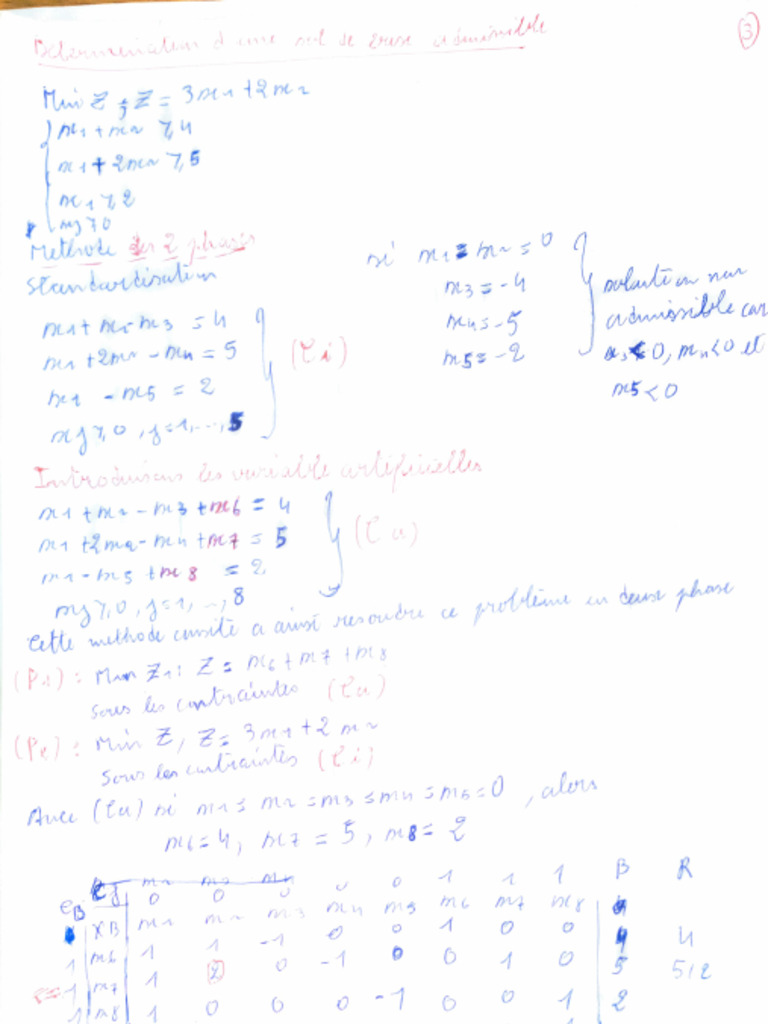 Determination d'une sol de base admissible
3
Min Z, Z = 3x1+2x2
x1+x2 ≥ 4
x1+2x2 ≥ 5
x1 ≥ 2
xj ≥ 0
Methode des 2 phases
Standardisation
x1+x2-x3 = 4
x1+2x2-x4 = 5
x1 -x5 = 2
xj ≥ 0, j=1,...,5
(Ci)
si x1 = x2 = 0
x3 = -4
x4 = -5
x5 = -2
solution non
admissible car
x3<0, x4<0 et
x5<0
Introduisons les variable artificielles
x1+x2-x3+x6 = 4
x1+2x2-x4+x7 = 5
x1-x5+x8 = 2
xj ≥ 0, j=1,..,8
(Ca)
Cette methode consite a ainsi resoudre ce problème en deux phase
(P1) : Min Z1: Z = x6+x7+x8
sous les contraintes (Ca)
(P2) : Min Z, Z = 3x1+2x2
Sous les contraintes (Ci)
Avec (Ca) si x1 = x2 = x3 = x4 = x5 = 0, alors
x6 = 4, x7 = 5, x8 = 2
x1 x2 x4
CB Cj 0 0 0 0 0 1 1 1 B R
XB x1 x2 x3 x4 x5 x6 x7 x8
x6 1 1 -1 0 0 1 0 0 4 4
1 x7 1 2 0 -1 0 0 1 0 5 5/2
1 x8 1 0 0 0 -1 0 0 1 2